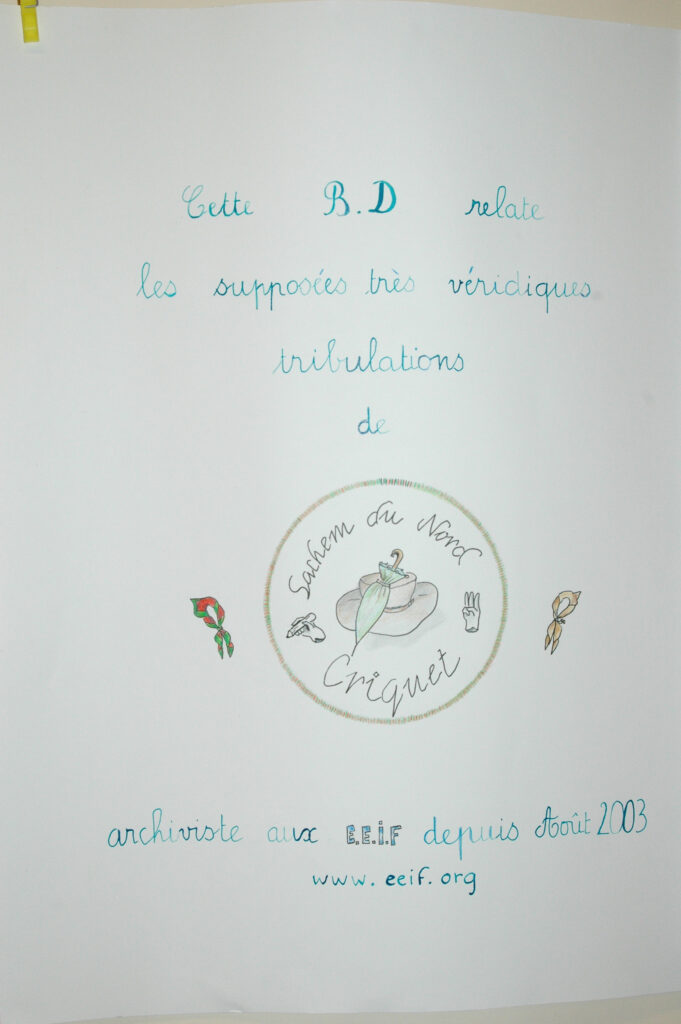 Cette B.D relate
les supposées très véridiques
tribulations
de
Sachem du Nord
Criquet
archiviste aux E.E.I.F depuis Août 2003
www.eeif.org